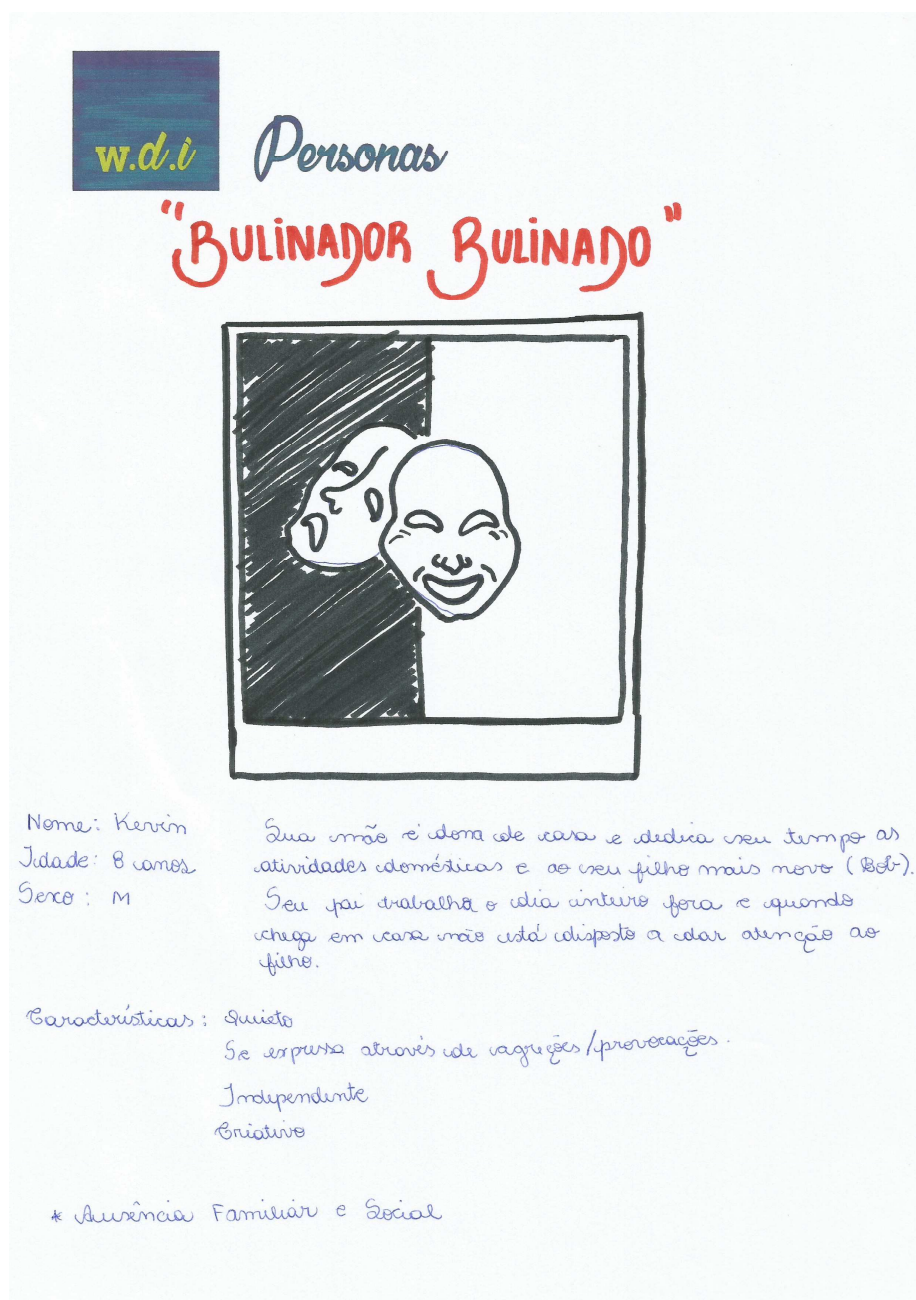 w.d.i
Personas
"BULINADOR BULINADO"
Nome: Kevin
Idade: 8 anos
Sexo: M
Sua mão é dona de casa e dedica seu tempo as
atividades domésticas e ao seu filho mais novo (Bob).
Seu pai trabalha o dia inteiro fora e quando
chega em casa não está disposto a dar atenção ao
filho.
Características: Quieto
Se expressa através de agreções/provocações.
Independente
Criativo
* Ausência Familiar e Social